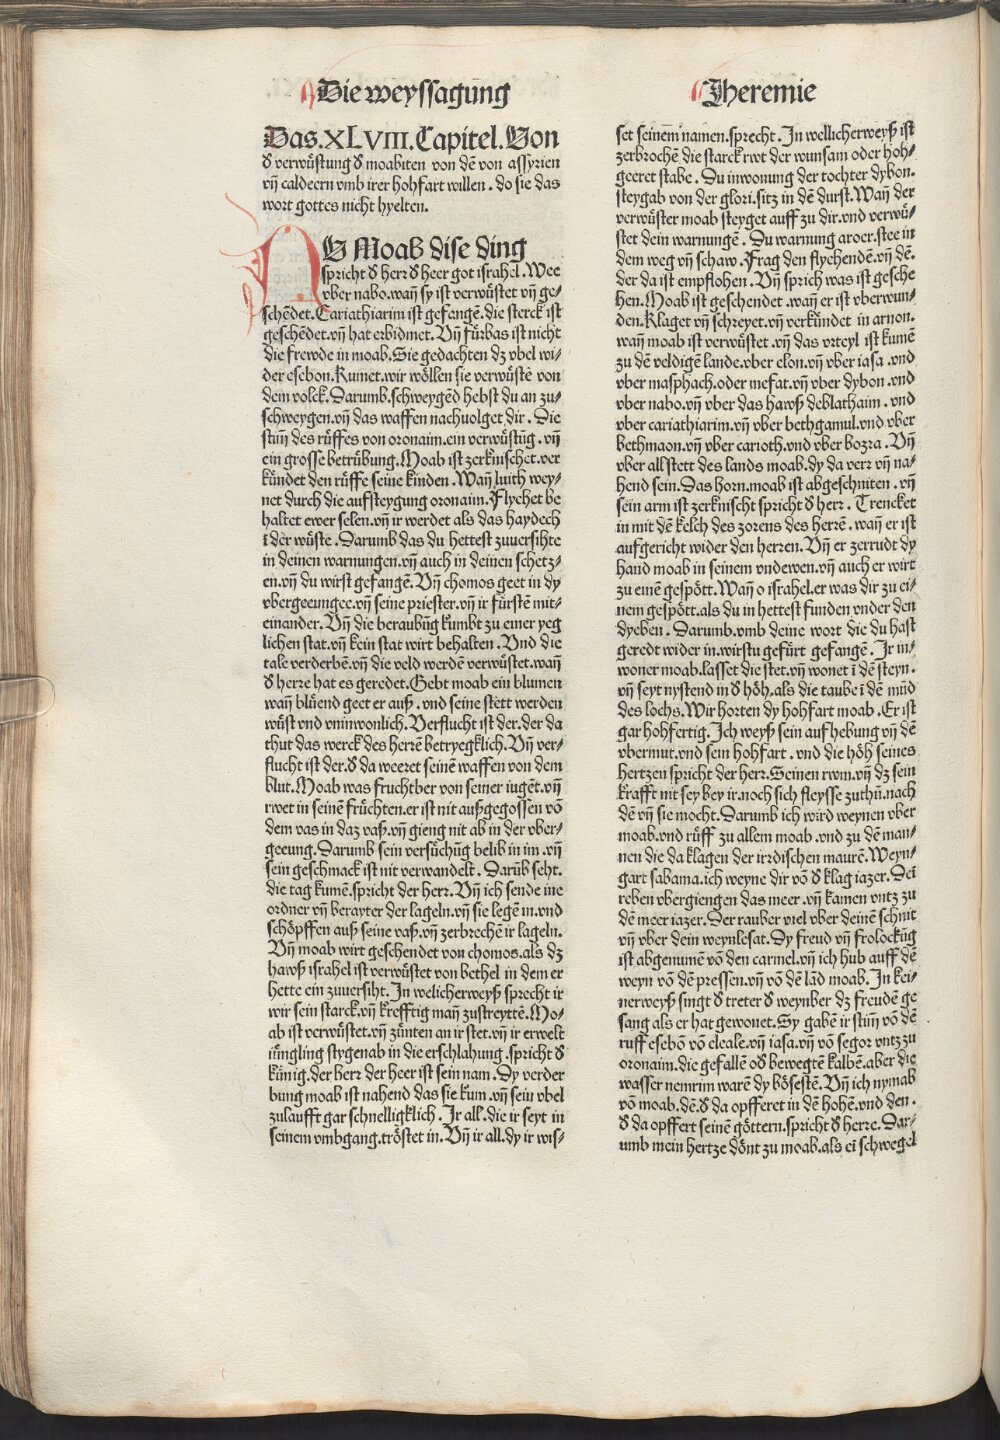 Die weyssagung
Jheremie
Das.XLVIII.Capitel.Von
d̕ verwüstung d̕ moabiten von dē von assyrien
vn̄ caldeern vmb irer hohfart willen. do sie das
wort gottes nicht hyelten.
NU Moab dise ding
spricht d̕ herr d̕ heer got israhel. Wee
vber nabo.wan̄ sy ist verwüstet vn̄ ge⸗
schēdet. Cariathiarim ist gefangē.die sterck ist
geschēdet.vn̄ hat erbidmet. Vn̄ fürbas ist nicht
die frewde in moab. Sie gedachten dz vbel wi⸗
der esebon. Kumet.wir wöllen sie verwüstē von
dem volck. Darumb.schweygēd hebst du an zu⸗
schweygen.vn̄ das waffen nachuolget dir. Die
stim̄ des rüffes von oronaim.ein verwüstūg. vn̄
ein grosse betrübung. Moab ist zerknischet.ver
kündet den rüffe seine kinden. Wan̄ luith wey⸗
net durch die aufsteygung oronaim. Flyhet be
haltet ewer selen.vn̄ ir werdet als das haydech
ī der wüste. Darumb das du hettest zuuersihte
in deinen warnungen.vn̄ auch in deinen schetz⸗
en.vn̄ du wirst gefangē. Vn̄ chomos geet in dy
vbergeungee.vn̄ seine priester.vn̄ ir fürstē mit⸗
einander. Vn̄ die beraubūg kumbt zu einer yeg
lichen stat.vn̄ kein stat wirt behalten. Vnd die
tale verderbē.vn̄ die veld werdē verwüstet.wan̄
d̕ herre hat es geredet. Gebt moab ein blumen
wan̄ blüend geet er auß. vnd seine stett werden
wüst vnd vninwonlich. Verflucht ist der.der da
thut das werck des herrē betryegklich. Vn̄ ver⸗
flucht ist der.d̕ da weeret seinē waffen von dem
blut. Moab was fruchtber von seiner iugēt.vn̄
rwet in seinē früchten.er ist nit außgegossen vō
dem vas in daz vaß.vn̄ gieng nit ab in der vber⸗
geeung. Darumb sein versüchūg belib in im.vn̄
sein geschmack ist nit verwandelt. Darūb seht.
die tag kumē.spricht der herr. Vn̄ ich sende ime
ordner vn̄ berayter der lageln.vn̄ sie legē in.vnd
schöpffen auß seine vaß.vn̄ zerbrechē ir lageln.
Vn̄ moab wirt geschendet von chomos.als dz
hawß israhel ist verwüstet von bethel in dem er
hette ein zuuersiht. In welicherweyß sprecht ir
wir sein starck.vn̄ krefftig man̄ zustreyttē. Mo⸗
ab ist verwüstet.vn̄ zünten an ir stet.vn̄ ir erwelt
iūngling stygenab in die erschlahung.spricht d̕
künig.der herr der heer ist sein nam. Dy verder
bung moab ist nahend das sie kum.vn̄ sein vbel
zulaufft gar schnelligklich. Ir all.die ir seyt in
seinem vmbgang.tröstet in. Vn̄ ir all.dy ir wis⸗
set seinem namen.sprecht. In wellicherweyß ist
zerbrochē die starck rwt der wunsam oder hoh⸗
geeret stabe. Du inwonung der tochter dybon.
steygab von der glori.sitz in dē durst. Wan̄ der
verwüster moab steyget auff zu dir.vnd verwü⸗
stet dein warnungē. Du warnung aroer.stee in
dem weg vn̄ schaw. Frag den flyehendē.vn̄ dē.
der da ist empflohen. Vn̄ sprich was ist gesche
hen. Moab ist geschendet.wan̄ er ist vberwun⸗
den. Klaget vn̄ schreyet.vn̄ verkündet in arnon.
wan̄ moab ist verwüstet.vn̄ das vrteyl ist kumē
zu dē veldigē lande.vber elon.vn̄ vber iasa.vnd
vber masphach.oder mefat.vn̄ vber dybon.vnd
vber nabo.vn̄ vber das hawß deblathaim. vnd
vber cariathiarim.vn̄ vber bethgamul.vnd vber
bethmaon.vn̄ vber carioth.vnd vber bozra. Vn̄
vber all stett des lands moab.dy da verr vn̄ na⸗
hend sein. Das horn.moab ist abgeschniten. vn̄
sein arm ist zerknischt spricht d̕ herr. Trencket
in mit dē kelch des zorens des herrē. wan̄ er ist
aufgericht wider den herren. Vn̄ er zerrudt dy
hand moab in seinem vndewen.vn̄ auch er wirt
zu einē gespött. Wan̄ o israhel.er was dir zu ei⸗
nem gespött.als du in hettest funden vnder den
dyeben. Darumb.vmb deine wort die du hast
geredt wider in.wirstu gefürt gefangē. Ir in⸗
woner moab.lasset die stet.vn̄ wonet ī dē steyn.
vn̄ seyt nystend in d̕ höh.als die taube ī dē mūd
des lochs. Wir horten dy hohfart moab. Er ist
gar hohfertig. Ich weyß sein aufhebung vn̄ dē
vbermut.vnd sein hohfart. vnd die höh seines
hertzen spricht der herr. Seinen rwm.vn̄ dz sein
krafft nit sey bey ir.noch sich fleysse zuthū.nach
dē vn̄ sie mocht. Darumb ich wird weynen vber
moab.vnd rüff zu allem moab.vnd zu dē man⸗
nen die da klagen der irrdischen maurē. Weyn⸗
gart sabama.ich weyne dir vō d̕ klag iazer. Dei
reben vbergiengen das meer.vn̄ kamen vntz zu
dē meer iazer. Der rauber viel vber deinē schnit
vn̄ vber dein weynlesat. Dy freud vn̄ frolockūg
ist abgenumē vō den carmel.vn̄ ich hub auff dē
weyn vō dē pressen.vn̄ vō dē lād moab. In kei⸗
nerweyß singt d̕ treter d̕ weynber dz freudē ge
sang als er hat gewonet. Sy gabē ir stim̄ vō dē
ruff esebō vō eleale.vn̄ iasa.vn̄ vō segor vntz zu
oronaim.die gefallē od̕ bewegtē kalbē.aber die
wasser nemrim warē dy bösestē. Vn̄ ich nymab
vō moab.dē.d̕ da opfferet in dē hohē.vnd den.
d̕ da opffert seinē göttern.spricht d̕ herre. Dar⸗
umb mein hertze dönt zu moab.als ei schwegel